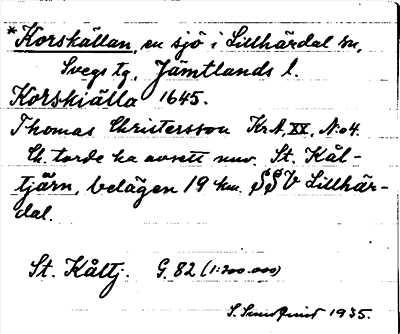 *Korskällan, en sjö i Lillhärdal sn,
Svegs tg, Jämtlands l.
Korskiälla 1645.
Thomas Christersson Kr.A, XX, No4.
Ch. torde ha avsett nuv. St. Kål-
tjärn, belägen 19 km. SSV Lillhär-
dal.
St. Kåltj. G. 82 (1:200.000)
S. Sundqvist 1935.